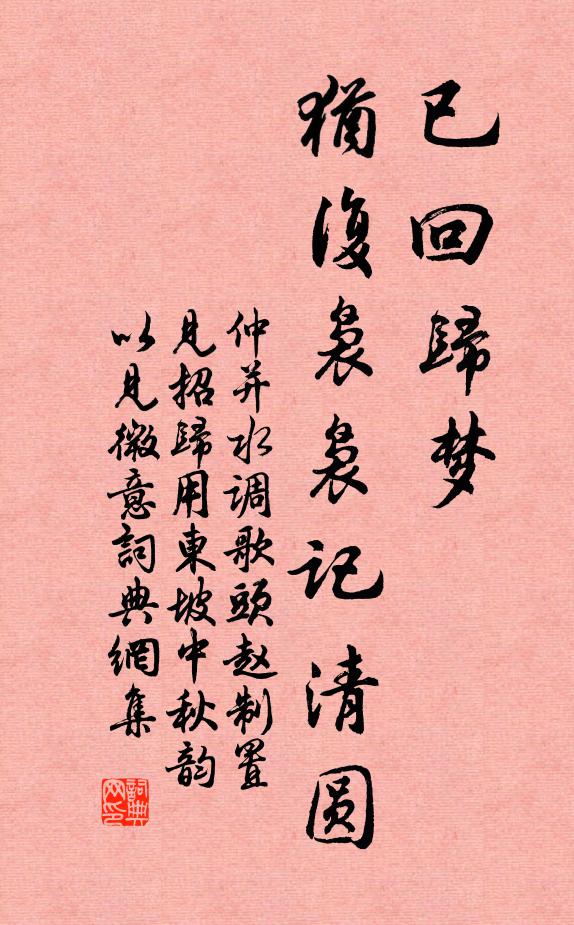 已回歸梦
猶復裊裊记清圆
仲并水调歌頭赵制置
見招歸用東坡中秋韵
以見微意詞典網集
詞典
网印